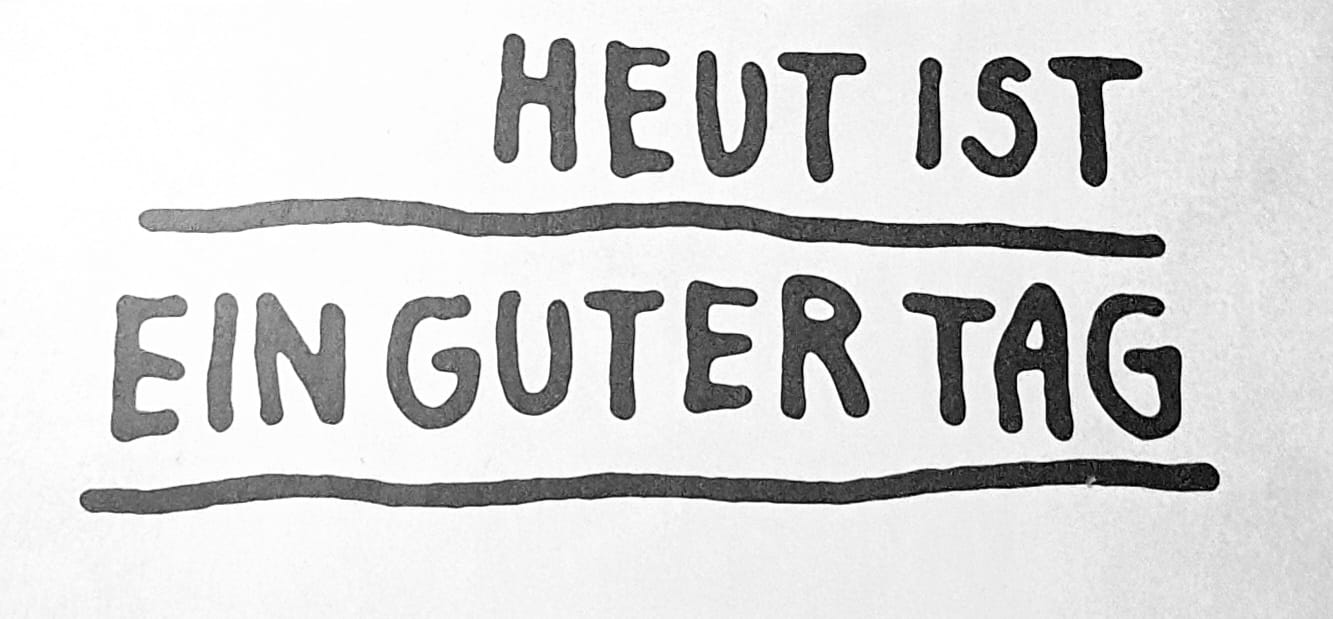 HEUT IST
EIN GUTER TAG